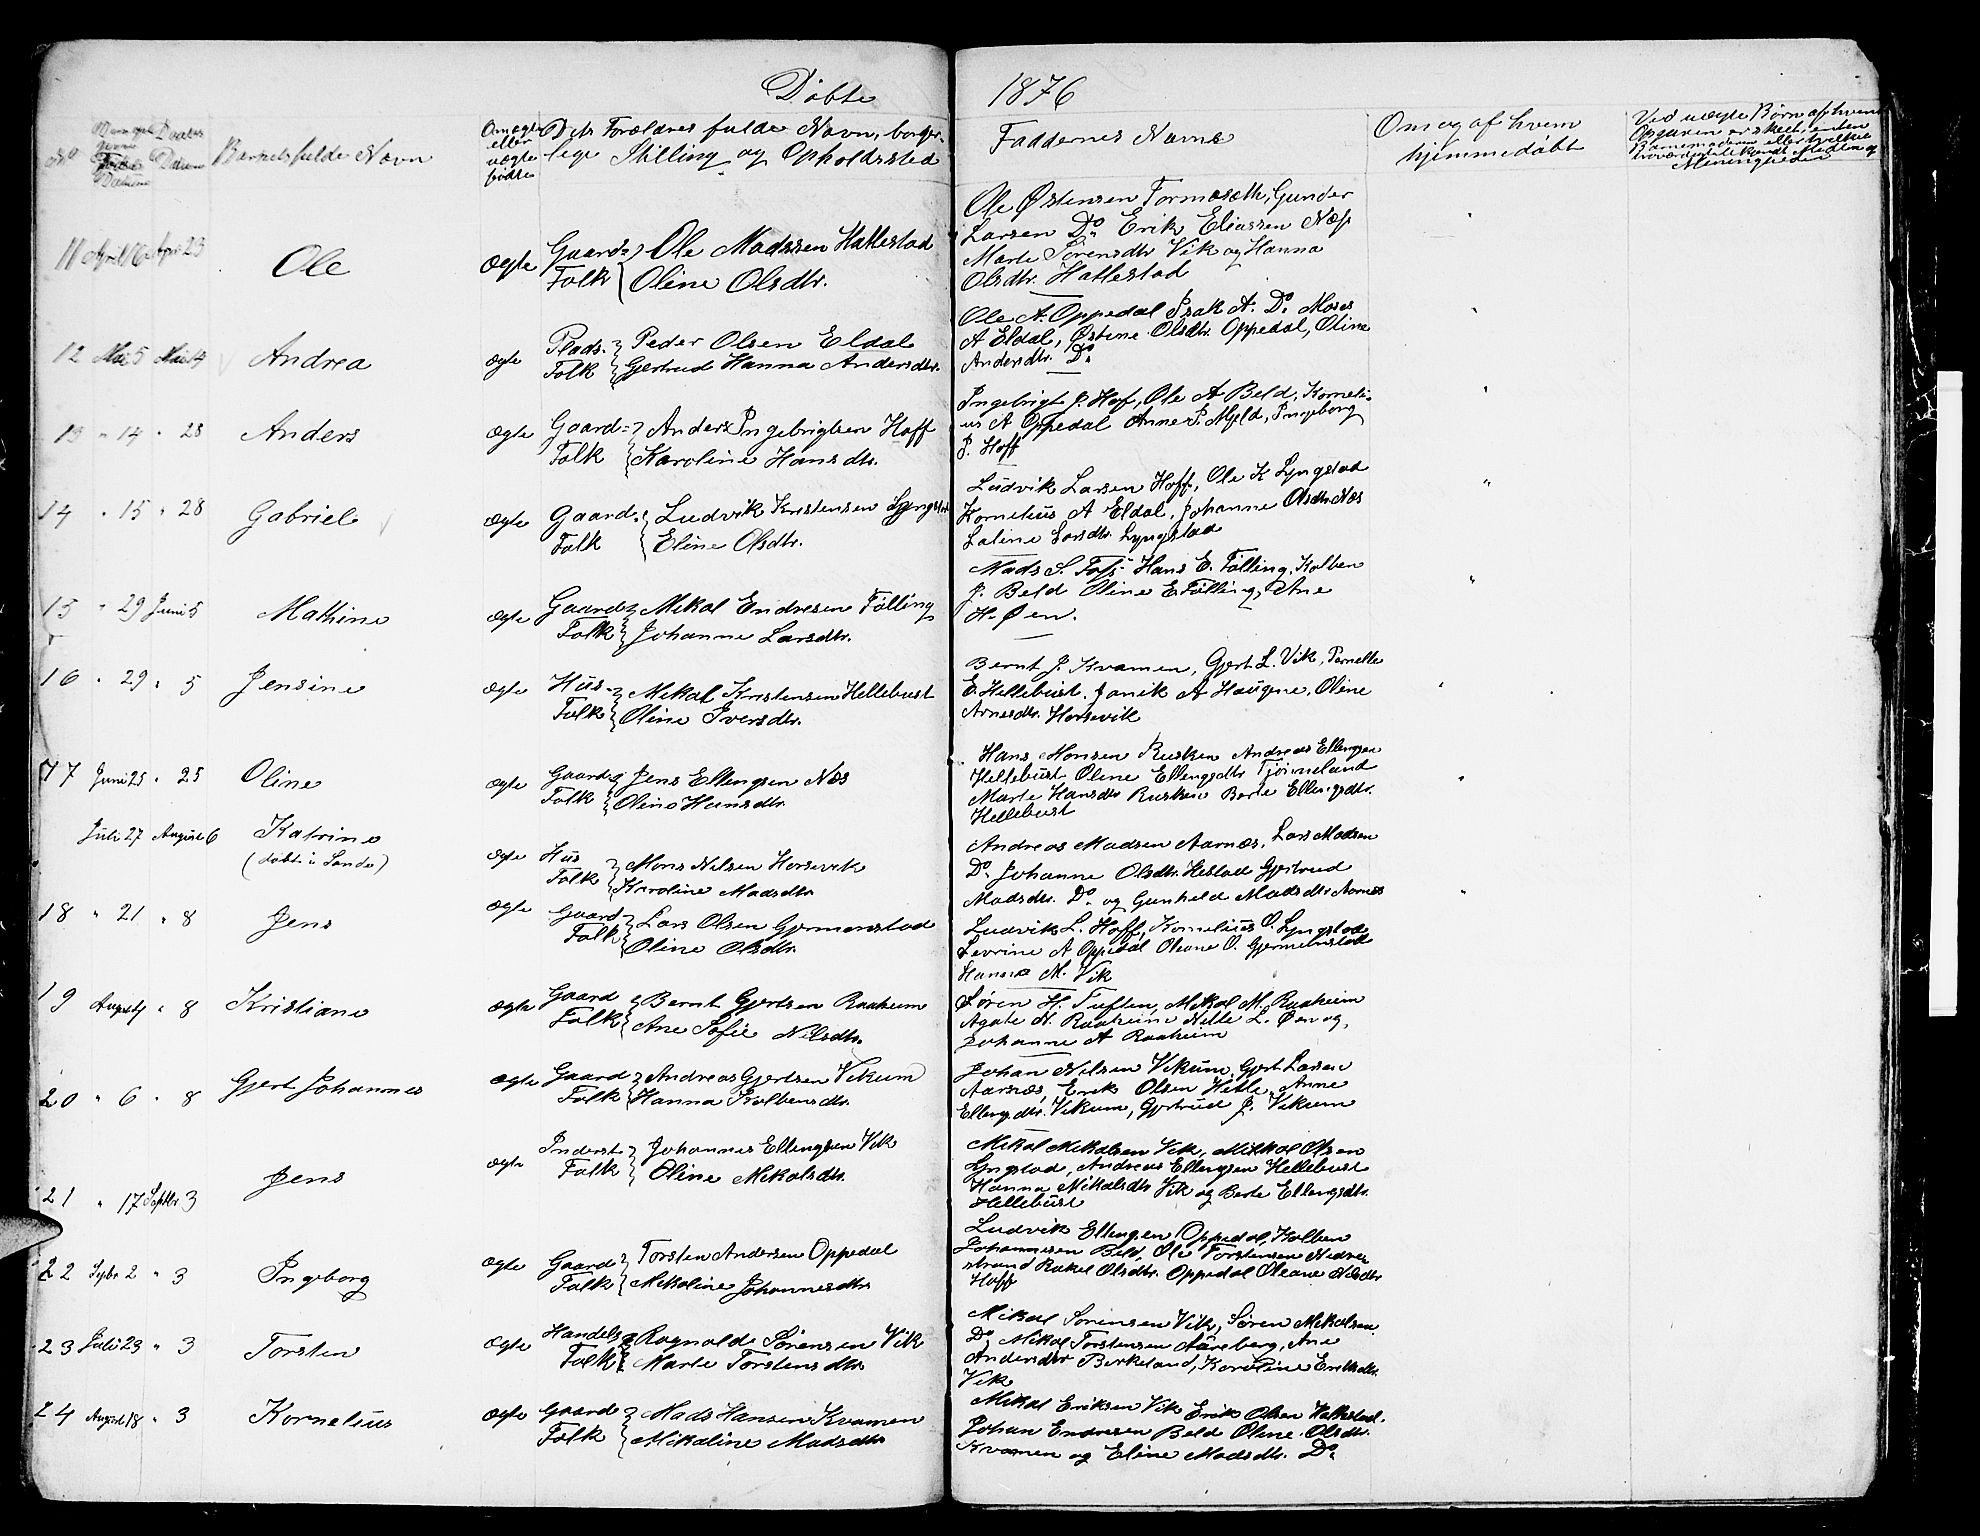 Døbte 1876
No
Barnets fulde Navn
Om ægte eller uægte fødte
Dets Forældres fulde Navn, borger-
lige Stilling og Opholdssted
Faddernes Navne
Om og af hvem
hjemmedøbt
Ved uægte Børn af hvem
Opgaven er skeet, enten
Barnemoderen eller tvende
troværdige bekjendt Medlem af
Menigheden
11 April 16 April 23 Ole ægte Gaard- Folk Ole Madssen Hattestad
Oline Olsdtr.
Ole Østensen Tormæseth, Gunder
Larsen Do. Erik Eliassen Næss
Marte Sørensdtr Vik og Hanna
Olsdtr. Hattestad
12 Mai 5 Mai 14 Andrea ægte Plads- Folk Peder Olsen Eldal
Gjertrud Hanna Andersdtr.
Ole A. Oppedal Isak A. Do. Moses
A Eldal, Østine Olsdtr. Oppedal, Oline
Andersdtr. Do
13 " 14 " 28 Anders ægte Gaard- Folk Anders Ingebrigtsen Hoff
Karoline Hansdtr.
Ingebrigt J. Hof, Ole A Beld, Korneli-
us A Oppedal Anne P. Mjeld, Ingeborg
J. Hoff
14 " 15 " 28 Gabriel ægte Gaard- Folk Ludvik Kristensen Lyngstad
Eline Olsdtr.
Ludvik Larsen Hoff, Ole K Lyngstad
Kornelius A Eldal, Johanne Olsdtr Næs
Laline Larsdtr. Lyngstad
15 " 29 Juni 5 Mathine ægte Gaard- Folk Mikal Endresen Følling
Johanne Larsdtr.
Mads S. Foss Hans E. Følling, Kolben
J. Beld Oline E Følling, Ane
H. Øen.
16 " 29 " 5 Jensine ægte Hus- Folk Mikal Kristensen Hellebust
Oline Iversdtr.
Bernt J. Kvamen, Gjert L. Vik, Pernelle
E. Hellebust. Janik A Haugene, Oline
Arnesdtr. Horsevik
17 Juni 25 " 25 Oline ægte Gaard- Folk Jens Ellengsen Næs
Oline Hansdtr.
Hans Monsen Rusken Andreas Ellengsen
Hellebust Oline Ellengsdtr Tjönneland
Marte Hansdtr Rusken Berte Ellengsdtr.
Hellebust
Juli 27 August 6 Katrine
(døbt i Sande)
ægte Hus Folk Mons Nilsen Horsevik
Karoline Madsdtr
Andreas Madsen Aarnæs, Lars Madsen
Do. Johanne Olsdtr. Hestad Gjertrud
Madsdtr. Do. og Gunhild Madsdtr Aarnæs
18 " 21 " 8 Jens ægte Gaard- Folk Lars Olsen Gjermenstad
Oline Olsdtr.
Ludvik L. Hoff, Kornelius O. Lyngstad
Levrine A Oppedal Oleane O. Gjermenstad
Hanna M. Vik
19 August " 8 Kristiane ægte Gaard Folk Bernt Gjertsen Raaheim
Ane Sofie Nilsdtr.
Søren H. Tuften, Mikal M. Raaheim
Agate N. Raaheim Nelle L. Øen og
Johanne A Raaheim
20 " 6 " 8 Gjert Johannes ægte Gaard- Folk Andreas Gjertsen Vikum
Hanna Kolbensdtr.
Johan Nilsen Vikum, Gjert Larsen
Aarnæs, Erik Olsen Hetle, Anne
Ellengsdtr. Vikum, Gjertrud J. Vikum
21 " 17 Septbr 3 Jens ægte Inderst- Folk Johannes Ellengsen Vik
Oline Mikalsdtr.
Mikal Mikalsen Vik, Mikkal Olsen
Lyngstad, Andreas Ellengsen Hellebust
Hanna Mikalsdtr Vik og Berte Ellengsdtr.
Hellebust
22 2 " 3 Ingeborg ægte Gaard Folk Torsten Andersen Oppedal
Mikaline Johannesdtr
Ludvik Ellengsen Oppedal, Kolben
Johannesen Beld, Ole Torstensen Nedre
strand Rakel Olsdtr. Oppedal Oleane Nilsdtr
Hoff
23 Juli 23 " 3 Torsten ægte Handels Folk Ragnalde Sørensen Vik
Marte Torstensdtr
Mikal Sørensen Vik, Søren Mikalsen
Do. Mikal Torstensen Aareberg, Ane
Andersdtr Birkeland, Karoline Eriksdtr.
Vik
24 August 18 " 3 Kornelius ægte Gaard Folk Mads Hansen Kvamen
Mikaline Madsdtr
Mikal Eriksen Vik Erik Olsen Hattestad.
Johan Endresen Beld Oline Olsdtr.
Kvamen og Eline Madsdtr. Do.